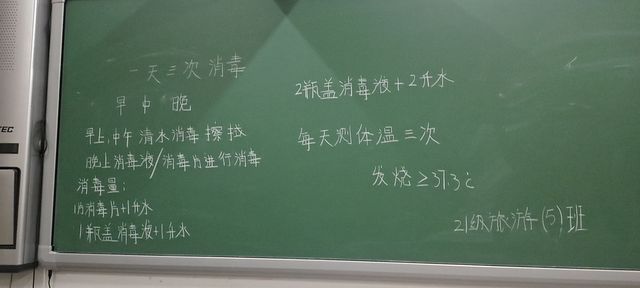 一天三次消毒
早 中 晚
早上,中午 清水消毒擦拭
晚上消毒液/消毒片进行消毒
消毒量:
1片消毒片+1升水
1瓶盖消毒液+1升水
2瓶盖消毒液+2升水
每天测体温三次
发烧≥37.3℃
21级旅游(5)班